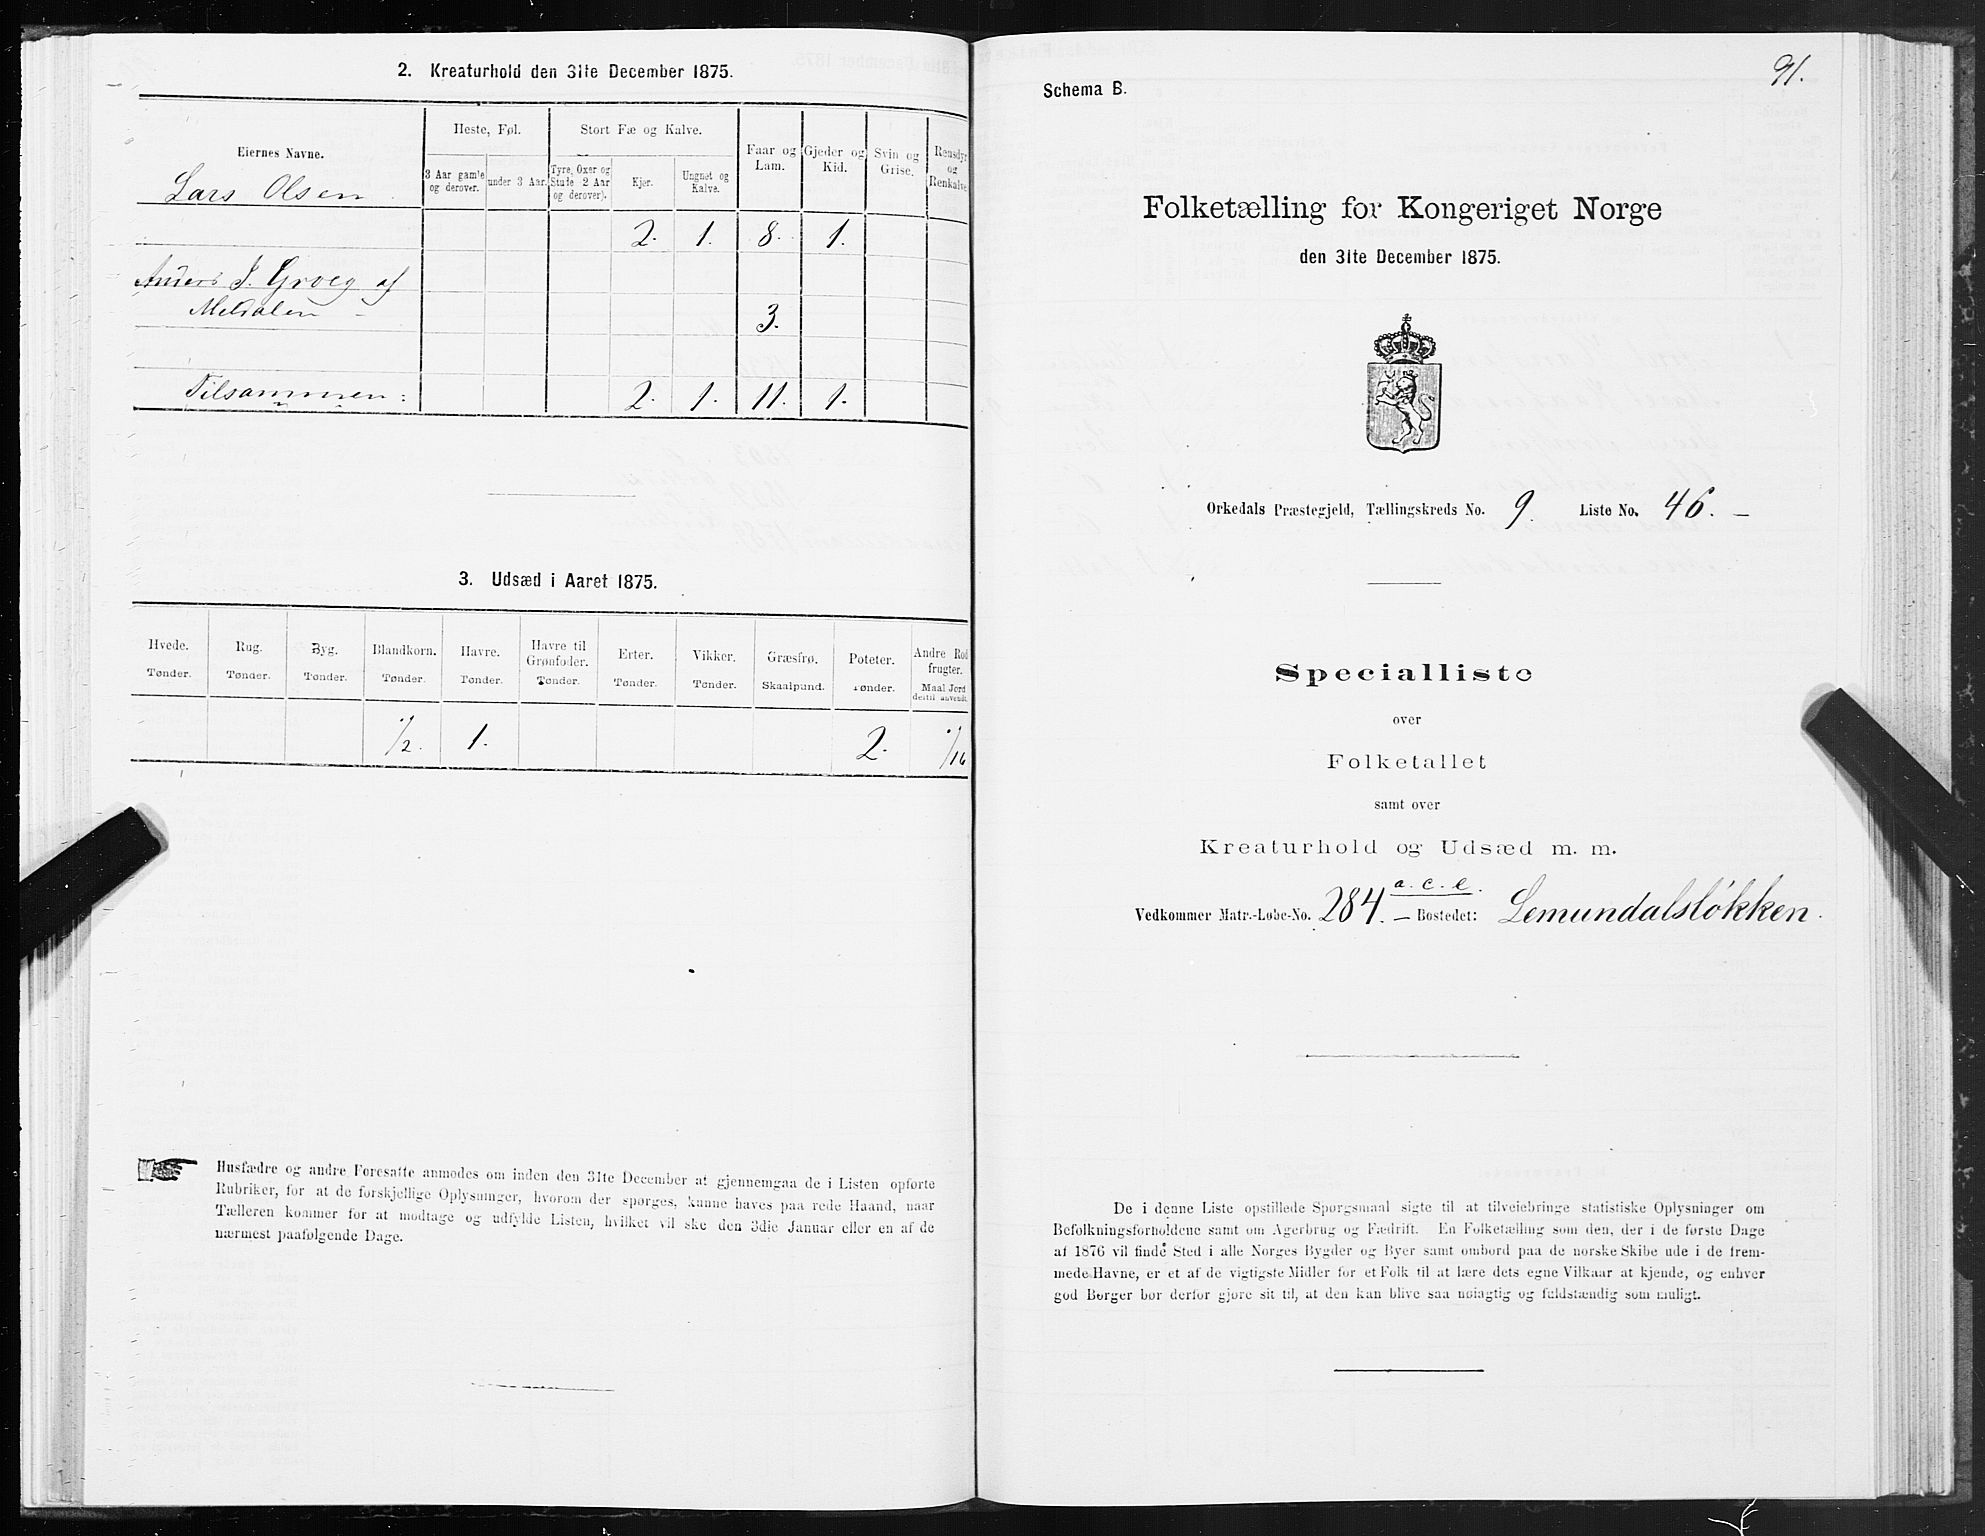 2. Kreaturhold den 31te December 1875.
Eiernes Navne.
Heste, Føl.
Stort Fæ og Kalve.
Faar og Lam.
Gjeder og Kid.
Svin og Grise.
Rensdyr og Renkalve
3 Aar gamle og derover.
under 3 Aar.
Tyre, Oxer og Stude 2 Aar og derover).
Kjør.
Ungnøt og Kalve.
Lars Olsen
2. 1. 8. 1.
Anders J. Groeg af
Meldalen - 3.
Tilsammen: 2. 1. 11. 1.
3. Udsæd i Aaret 1875.
Hvede. Rug. Byg. Blandkorn. Havre. Havre til Grønfoder. Erter. Vikker. Græsfrø. Poteter. Andre Rodfrugter.
Tønder. Tønder. Tønder. Tønder. Tønder. Tønder. Tønder. Tønder. Skaalpund. Tønder. Maal Jord dertil anvendt.
1/2. 1. 2. 1/16
Husfædre og andre Foresatte anmodes om inden den 31te December at gjennemgaa de i Listen opførte
Rubriker, for at de forskjellige Oplysninger, hvorom der spørges, kunne haves paa rede Haand, naar
Tælleren kommer for at modtage og udfylde Listen, hvilket vil ske den 3die Januar eller en af de
nærmest paafølgende Dage.
91.
Schema B.
Folketælling for Kongeriget Norge
den 31te December 1875.
Orkedals Præstegjeld, Tællingskreds No. 9. Liste No. 46. -
Specialliste
over
Folketallet
samt over
Kreaturhold og Udsæd m. m.
Vedkommer Matr.-Løbe-No. 284. a. c. e. - Bostedet: Lemundalsløkken.
De i denne Liste opstillede Spørgsmaal sigte til at tilveiebringe statistiske Oplysninger om
Befolkningsforholdene samt om Agerbrug og Fædrift. En Folketælling som den, der i de første Dage
af 1876 vil finde Sted i alle Norges Bygder og Byer samt ombord paa de norske Skibe ude i de frem-
mede Havne, er et af de vigtigste Midler for et Folk til at lære dets egne Vilkaar at kjende, og enhver
god Borger bør derfor gjøre sit til, at den kan blive saa nøiagtig og fuldstændig som muligt.